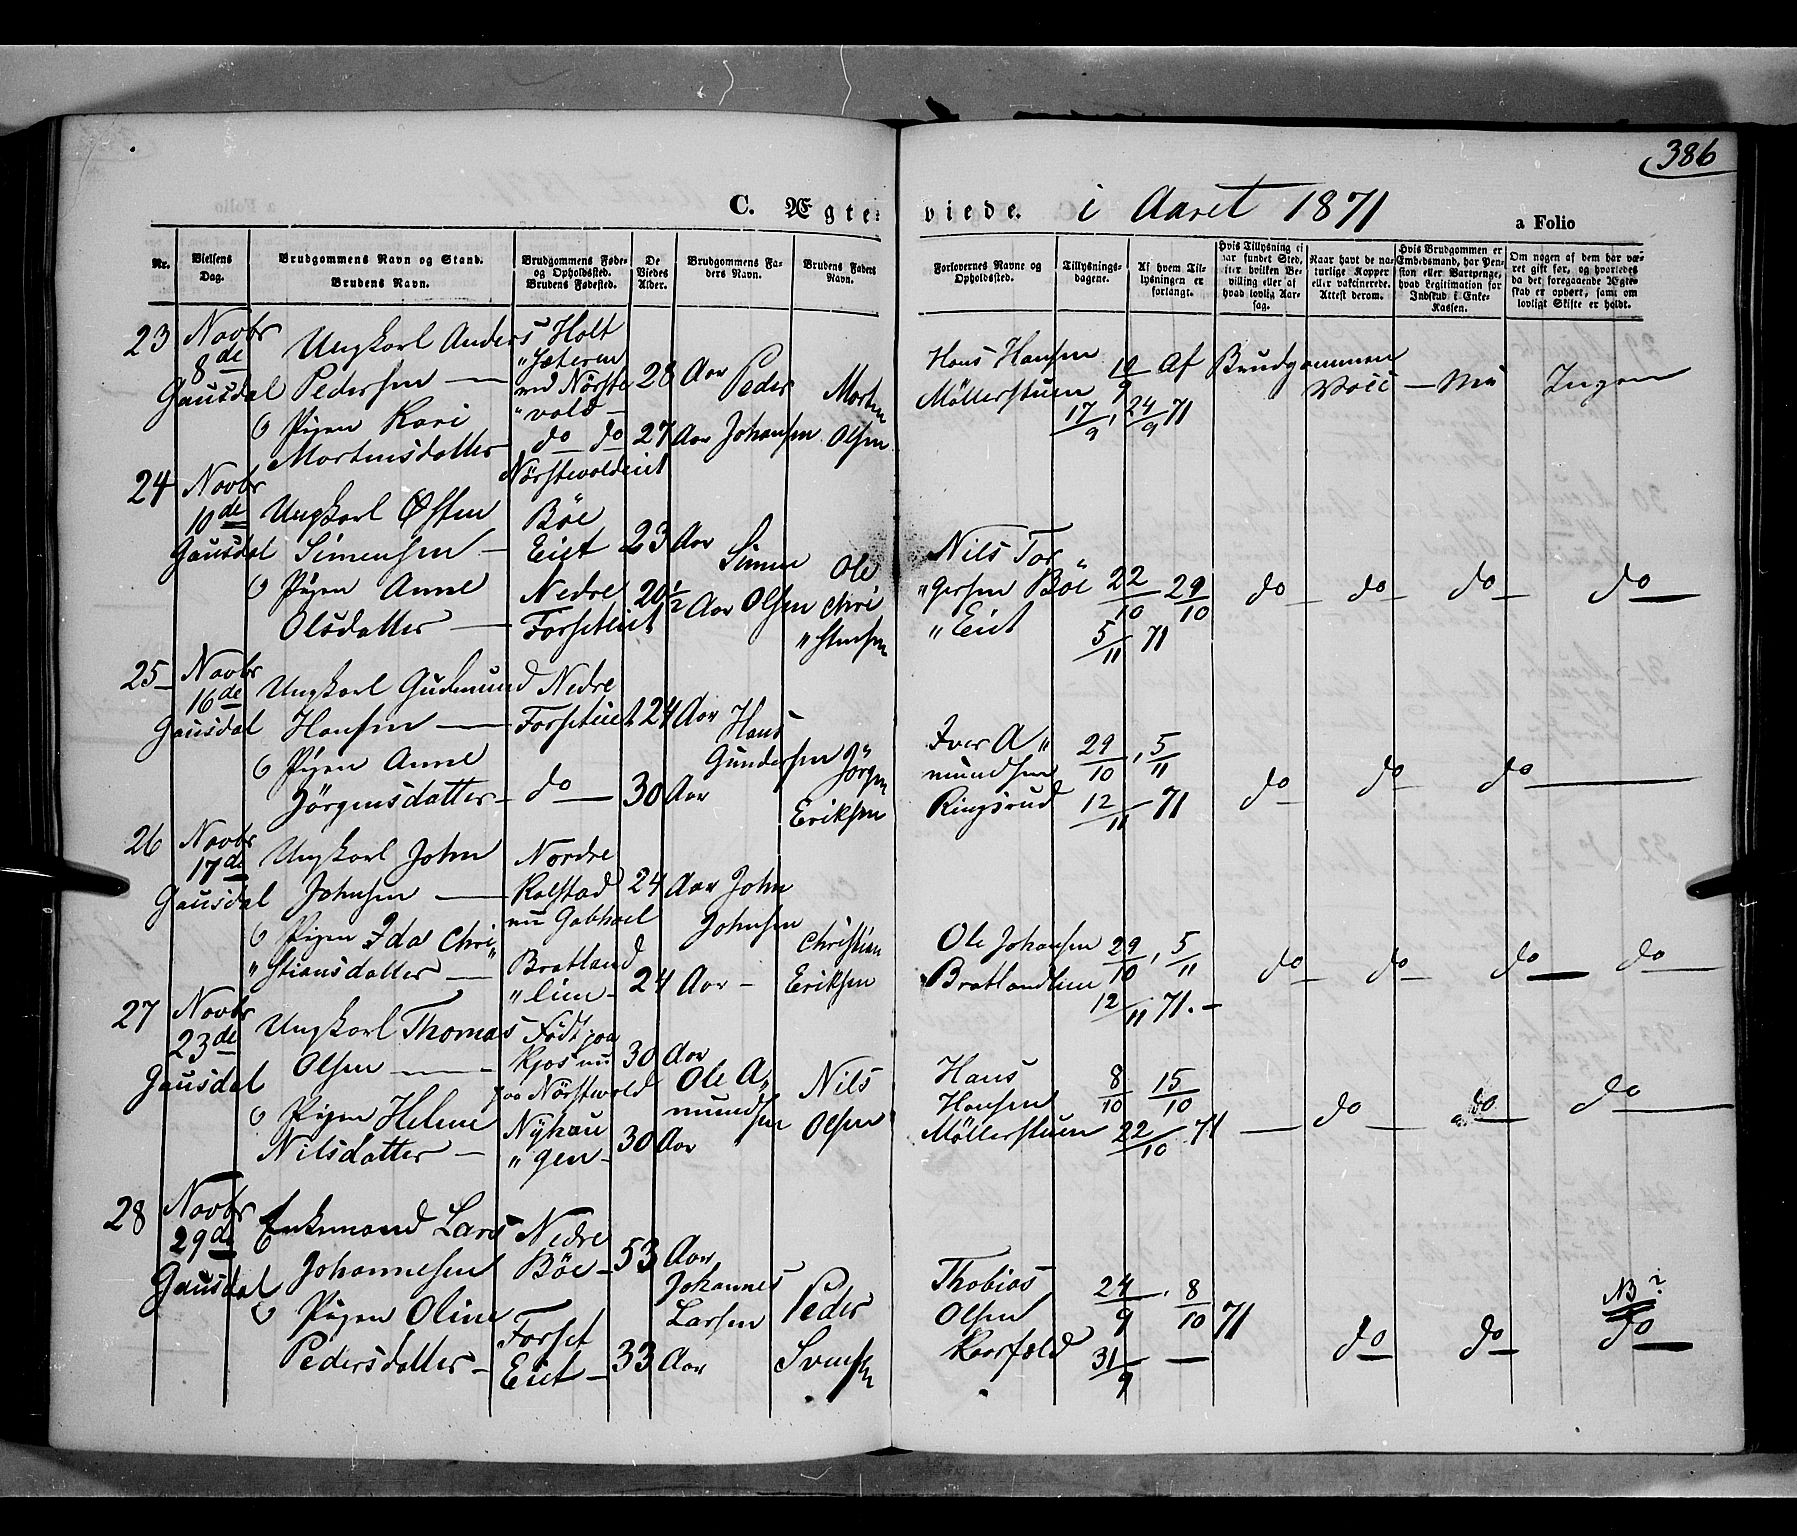 386
C. Ægteviede. i Aaret 1871
a Folio
Nr.
Vielsens Dag.
Brudgommens Navn og Stand.
Brudens Navn.
Brudgommens Føde- og Opholdssted.
Brudens Fødested.
De Viedes Alder.
Brudgommens Faders Navn.
Brudens Faders Navn.
Forlovernes Navne og Opholdssted.
Tillysningsdagene.
Af hvem Tillysningen er forlangt.
Hvis Tillysning ei har fundet Sted, efter hvilken Bevilling eller af hvad lovlig Aarsag.
Naar havt de naturlige Kopper eller vakcinerede. Attest derom.
Hvis Brudgommen er Embedsmand, har Pension eller Vartpenge, hvad Legitimation for Indskud i Enke-Kassen.
Om nogen af dem har været gift før, og hvorledes da det foregaaende Ægteskab er ophørt, samt om lovligt Skifte er holdt.
23 Novbr 8de Gausdal
Ungkarl Anders Pedersen
Holt
28 Aar
Peder Johansen
& Pigen Kari Mortensdatter
do do
Nörstevoldeiet
27 Aar
Morten Olsen
Hans Hansen Möllerstuen
10/9
17/9, 24/9 71
Af Brudgommen
Ingen
24 Novbr 10de Gausdal
Ungkarl Østen Simensen
Böe Eiet
23 Aar
Simen Olsen
& Pigen Anne Olsdatter
Nedre Forseteiet
20 1/2 Aar
Ole Chri„stensen
Nils Tor„gersen Böe„Eiet
22/10 29/10
5/11 71
do do do do
25 Novbr 16de Gausdal
Ungkarl Gudmund Hansen
Nedre Forseteiet
24 Aar
Hans Gundersen
& Pigen Anne Jörgensdatter
do
30 Aar
Jörgen Eriksen
Iver A„mundsen Ringsrud
29/10, 5/11
12/11 71
do do do
26 Novbr 17de Gausdal
Ungkarl John Johnsen
Nordre Kalstad nu
24 Aar
John Johnsen
& Pigen Ida Chri„stiansdatter
Bratland„lien
24 Aar
Christian Eriksen
Ole Johansen Bratlandlien
29/10, 5/11
12/11 71.
do do do do
27 Novbr 23de Gausdal
Ungkarl Thomas Olsen
Födt paa Kjos nu paa Nörstevold
30 Aar
Ole A„mundsen
& Pigen Helene Nilsdatter
Nyhau„gen
30 Aar
Nils Olsen
Hans Hansen Möllerstuen
8/10 15/10
22/10 71
do do do
28 Novbr 29de Gausdal
Enkemand Lars Johannesen
Nedre Böe
53 Aar
Johannes Larsen
& Pigen Oline Pedersdatter
Forset Eiet
33 Aar
Peder Svensen
Thobias Olsen Kaarfald
24/9, 8/10 71
31/9
do do
NB?
do